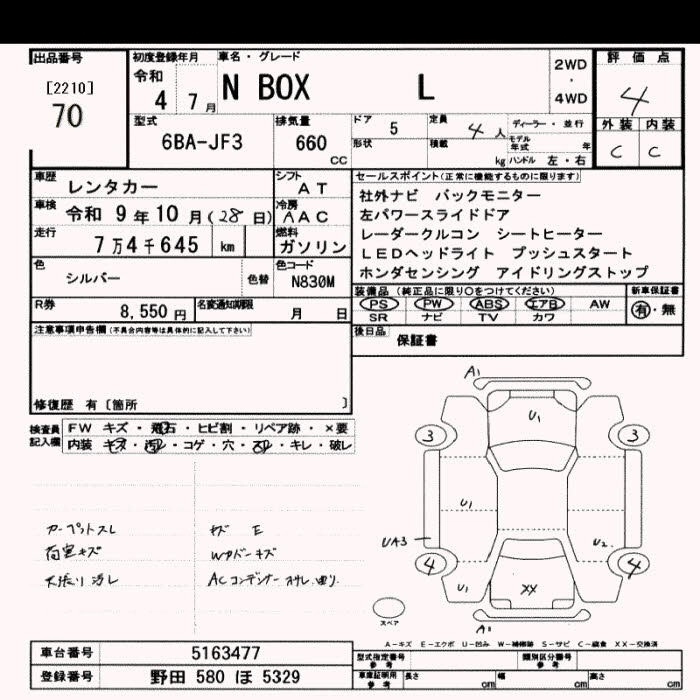 出品番号
[2210]
70
初度登録年月
令和
4 7月
車名・グレード
N BOX L
2WD
・
4WD
評価点
4
外装 内装
C C
型式
6BA-JF3
排気量
660
CC
ドア
5
定員
4人
ディーラー・並行
形状
積載
kg
モデル年式 年
ハンドル 左・右
車歴
レンタカー
車検
令和 9年10月(28日)
走行
7万4千645 km
シフト
AT
冷房
AAC
燃料
ガソリン
色
シルバー
色替
色コード
N830M
R券
8,550円
名変通知期限
月 日
セールスポイント(正常に機能するものに限ります)
社外ナビ バックモニター
左パワースライドドア
レーダークルコン シートヒーター
LEDヘッドライト プッシュスタート
ホンダセンシング アイドリングストップ
装備品 (純正品に限り○をつけてください)
PS PW ABS エアB AW
SR ナビ TV カワ
新車保証書
有・無
後日品
保証書
注意事項申告欄(不具合内容等は具体的に記入して下さい)
修復歴 有 [箇所 ]
検査員
記入欄
FW キズ・飛石・ヒビ割・リペア跡・×要
内装 キズ・汚レ・コゲ・穴・スレ・キレ・破レ
カーペットスレ
荷室キズ
天張り汚レ
キズ E
Wドバーキズ
ACコンデンサー サビ,曲り.
A1
U1
3
3
U1
UA3
U2
4
4
U1
XX
スペア
A1
A-キズ E-エクボ U-凹み W-補修跡 S-サビ C-腐食 XX-交換済
車台番号
5163477
登録番号
野田 580 ほ 5329
型式指定番号
参考
類別区分番号
参考
車庫証明用
参考
長さ cm
幅 cm
高さ cm